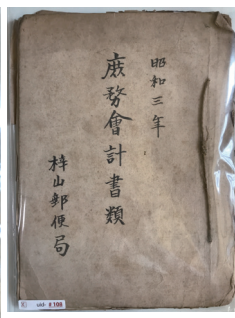 昭和三年
庶務會計書類
梓山郵便局